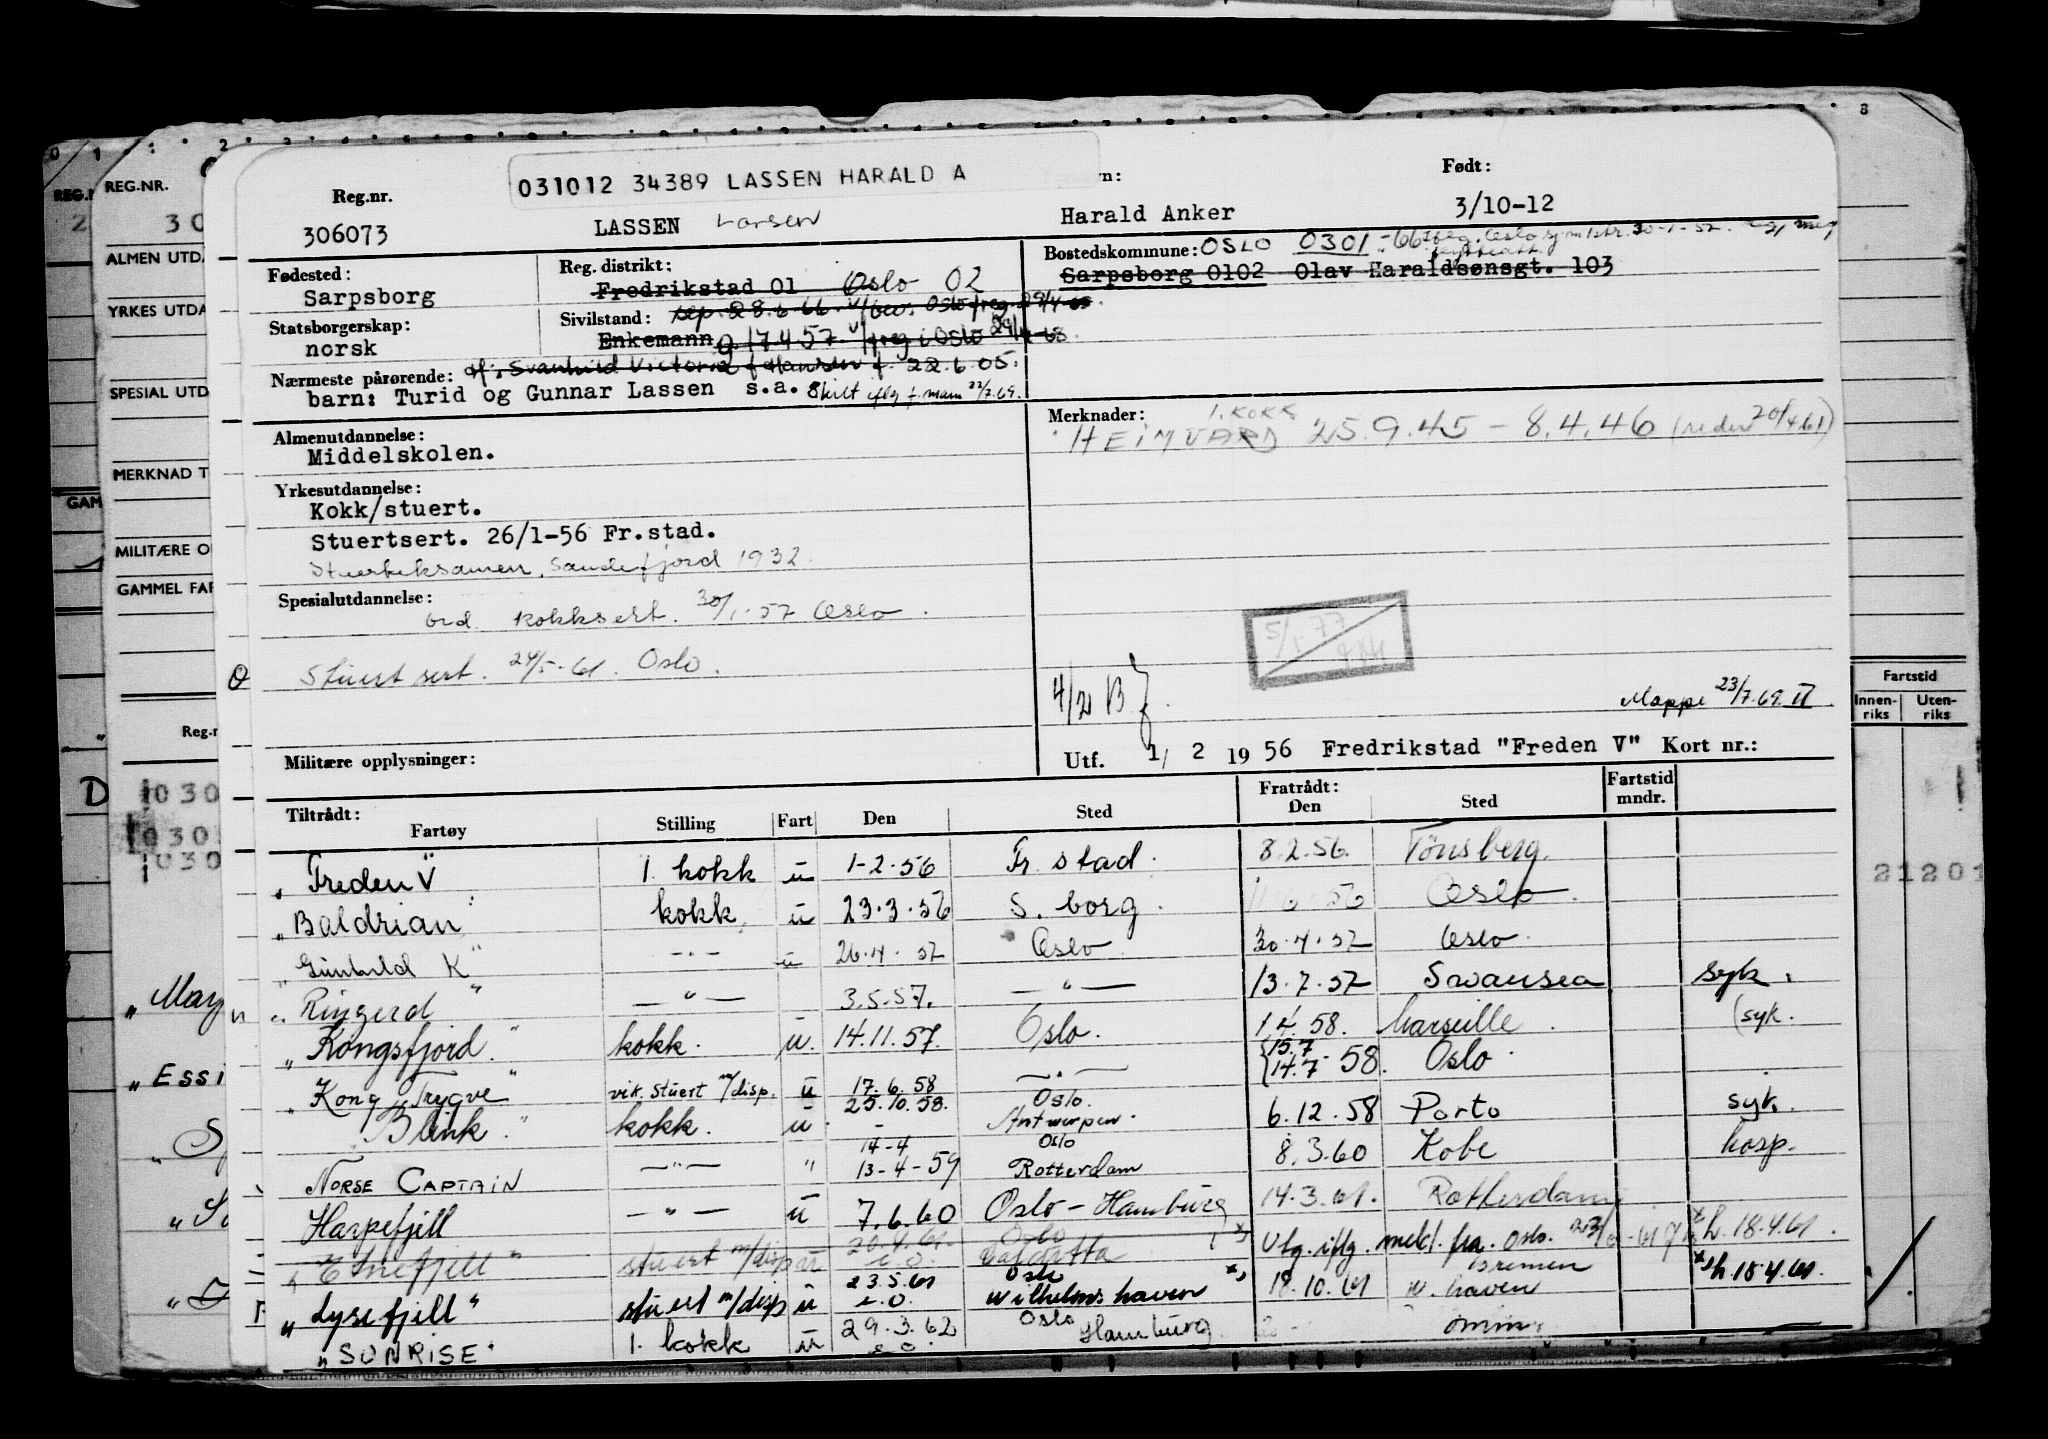 031012 34389 LASSEN HARALD A
Reg.nr.
306073
LASSEN Larsen
Harald Anker
Født:
3/10-12
Fødested:
Sarpsborg
Reg. distrikt:
Fredrikstad 01 Oslo 02
Bostedskommune: OSLO 0301
Sarpsborg 0102 Olav Haraldsønsgt. 103
Statsborgerskap:
norsk
Sivilstand: sep. 28.6.66
Enkemann g 17457
Nærmeste pårørende: Svanhild Victoria f Hansen f. 22.6.05.
barn: Turid og Gunnar Lassen s.a. Skilt iflg f.mann 22/7.69.
Almenutdannelse:
Middelskolen.
Merknader: 1. KOKK
HEIMVARD 25.9.45 - 8.4.46
Yrkesutdannelse:
Kokk/stuert.
Stuertsert. 26/1-56 Fr.stad.
Sandefjord 1932
Spesialutdannelse:
ord. kokksert. 30/1-57 Oslo.
Stuert sert. 24/5-61. Oslo.
5/1 77
Mappe 23/7.69. II
Militære opplysninger:
Utf. 1/ 2 1956 Fredrikstad "Freden V" Kort nr.:
Tiltrådt:
Fartøy Stilling Fart Den Sted
Fratrådt:
Den Sted
Fartstid
mndr.
"Freden V" 1. kokk u 1-2-56 Fr. stad. 8.2.56. Tönsberg.
"Baldrian" kokk u 23.3.56 S. borg. Oslo
"Gunhild K" -"- u 26.4.57 Oslo 30.4.57 Oslo
"Ringerd" -"- 3.5.57. -"- 13.7.57 Swansea syk.
"Kongsfjord" kokk. u. 14.11.57. Oslo. 1.4.58. Marseille (syk.
"Kong Trygve" vik. stuert m/disp. u 17.6.58 -"- {15.7 14.7 58. Oslo
Blink" kokk. u. 25.10.58. Oslo. Antwerpen. 6.12.58 Porto syk.
NORSE CAPTAIN -"- " 14-4 13-4-59 Oslo Rotterdam 8.3.60 Kobe hosp.
Harpefjell -"- u 7.6.60 Oslo - Hamburg 14.3.61. Rotterdam
"Etnefjell" stuert m/disp u 20.4.61. Oslo Utg. iflg. meld. fra. Oslo. 18.4.61.
"Lysefjell" stuert m/disp u 23.5.61 Oslo Wilhelmshaven 18.10.61 Bremen W. haven 18.4.61.
"SUNRISE" 1. kokk u 29.3.62 Oslo Hamburg
REG.NR.
30
ALMEN UTD.
YRKES UTDA
SPESIAL UTD
MERKNAD T
GAM
MILITÆRE O
GAMMEL FAR
Reg.n
030
030
030
"May
"Essi
Fartstid
Innen-
riks
Uten-
riks
21201